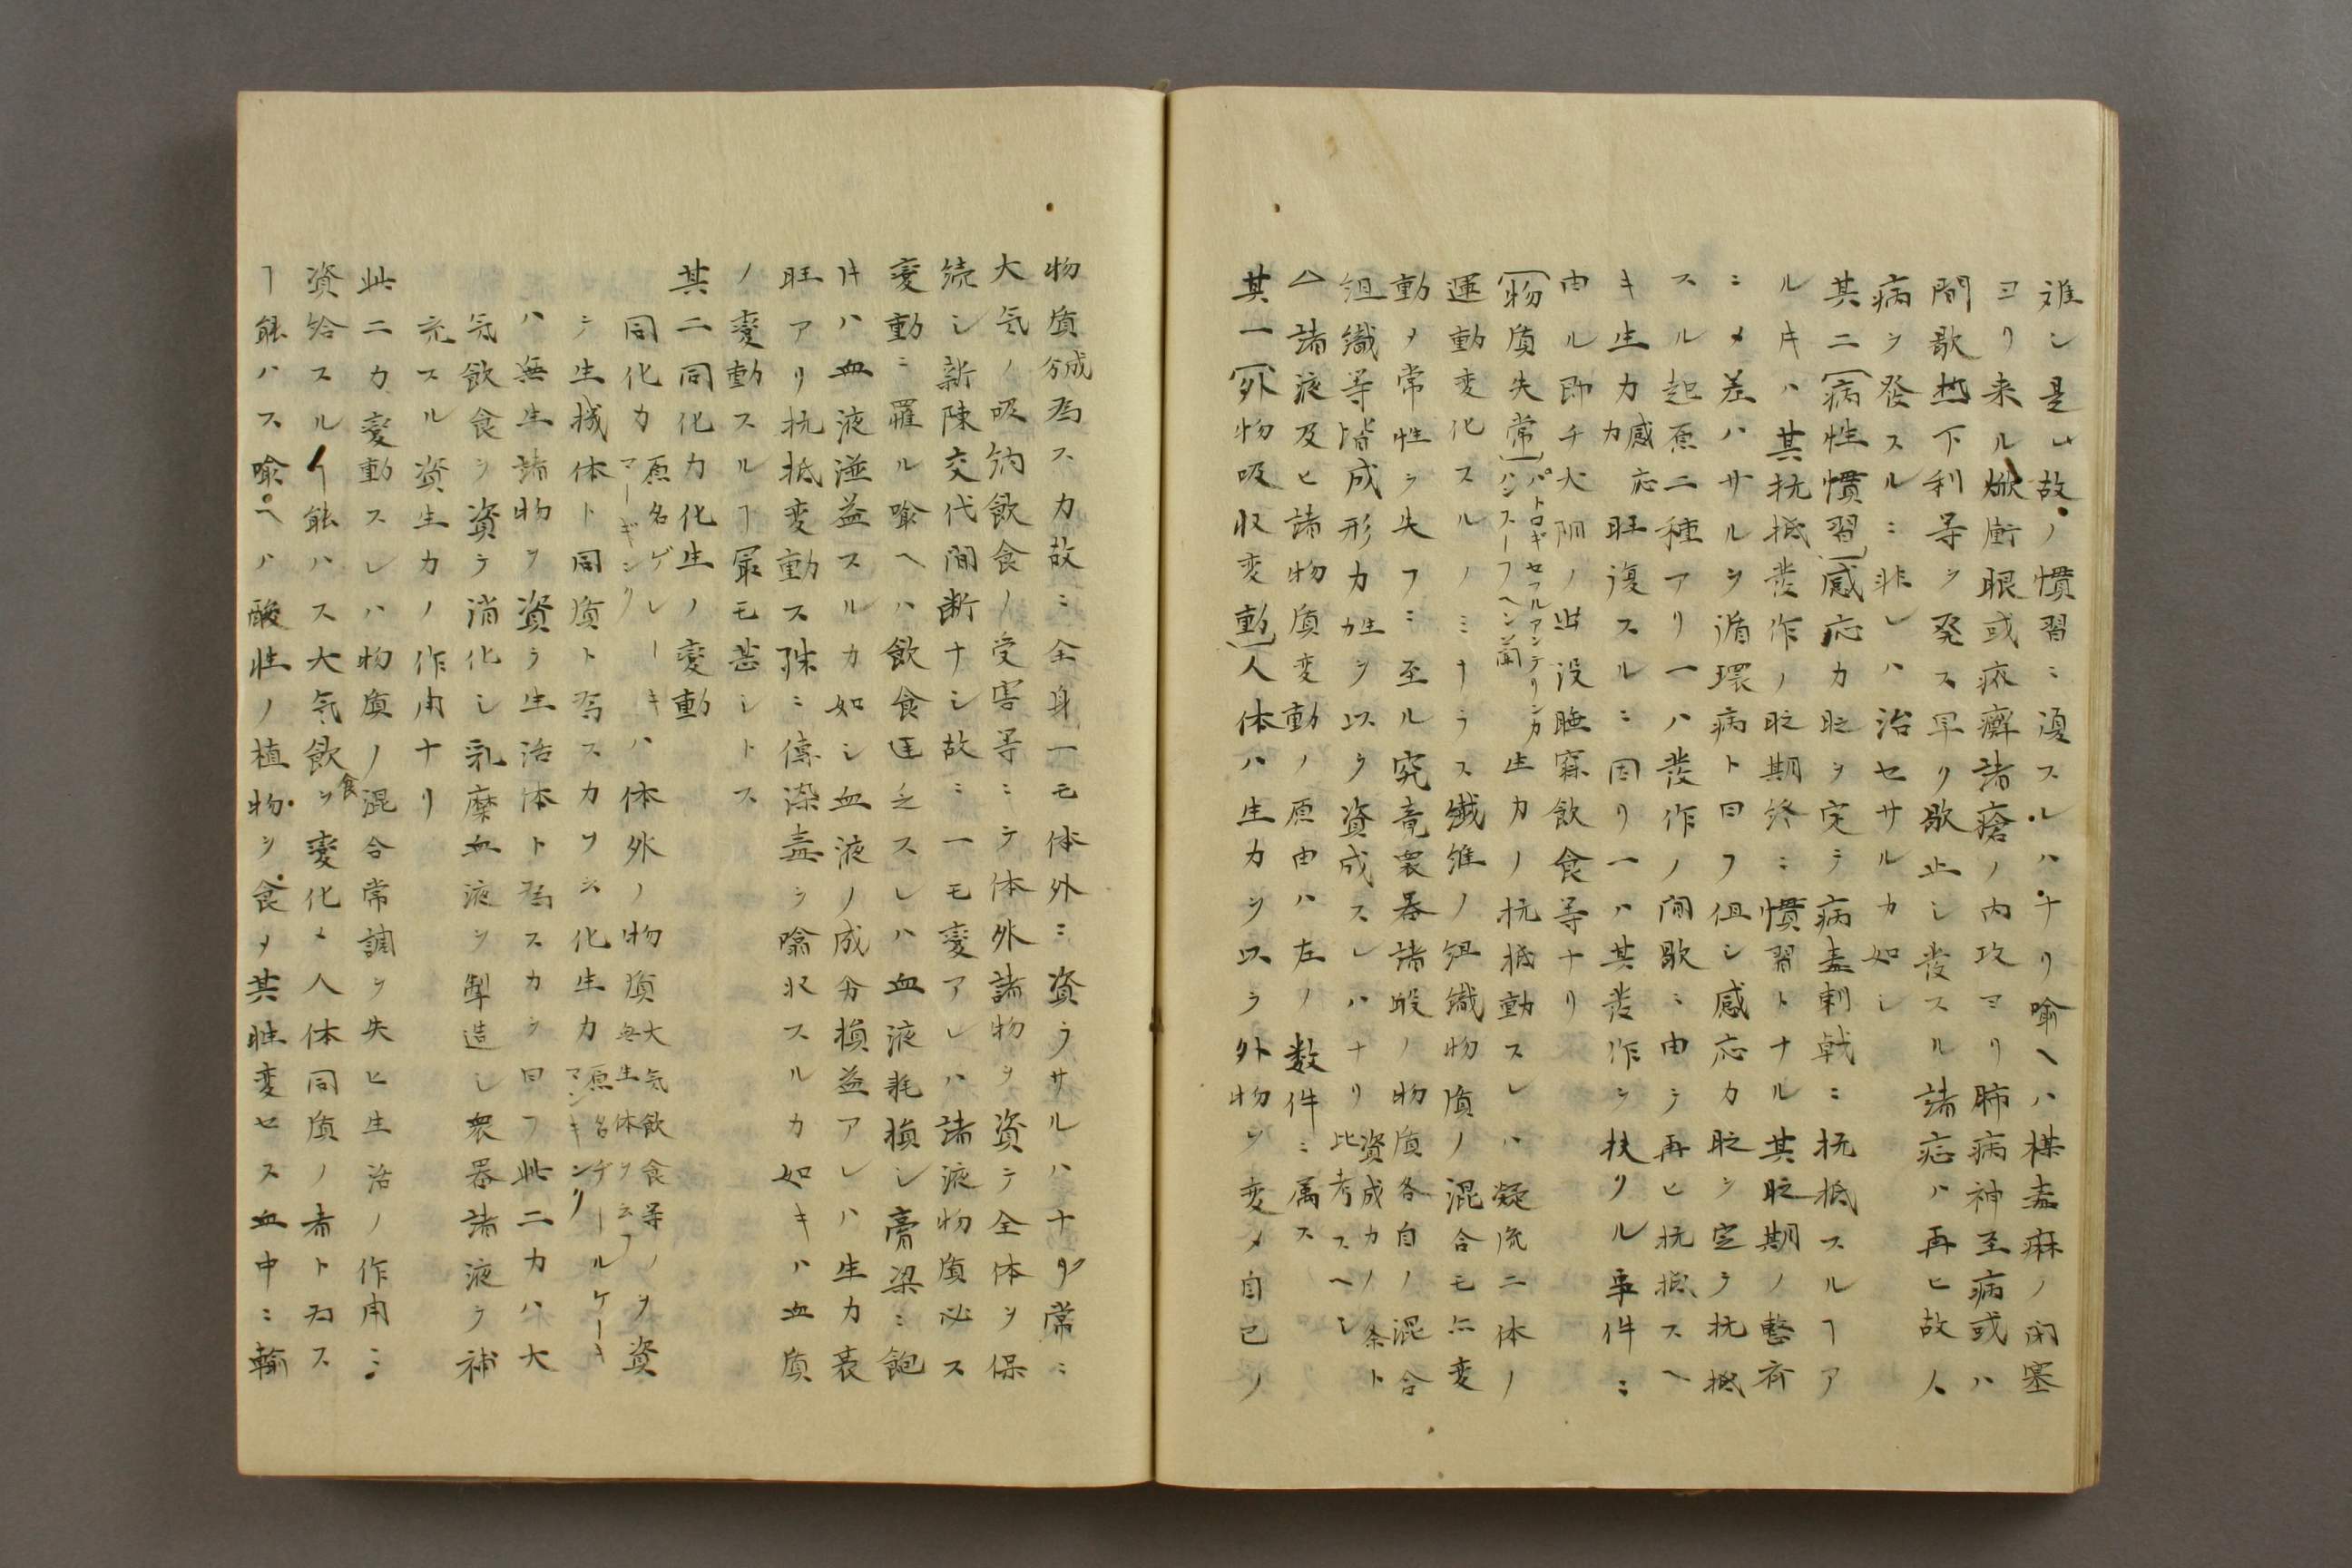 難シ是レ故ノ慣習ニ復スルハナリ喩ヘハ楳毒麻ノ閉塞
ヨリ来ル焮衝眼或疥癬諸瘡ノ内攻ヨリ肺病神至病或ハ
間歇熱下利等ヲ発ス早ク歇止シ発スル諸症ハ再ヒ故人
病ヲ發スルニ非レハ治セサルカ如シ
其二〔病性慣習〕感応力定ヲ定テ病毒刺戟ニ抗抵スルヿア
ルキハ其抗抵発作ノ定期終ニ慣習トナル其定期ノ整斉
ニメ差ハサルヲ循環病ト曰フ但シ感応力定ヲ定テ抗抵
スル起原二種アリ一ハ発作ノ間歇ニ由テ再ヒ抗抵スヘ
キ生力感応力旺復スルニ因リ一ハ其発作ヲ扶クル事件ニ
由ル即チ大陽ノ出没睡寐飲食等ナリ
〔物質失常〕パトロギセフルアンデリンカハンスーフヘン蘭生力ノ抗抵動スレハ凝流二体ノ
運動変化スルノミナラス繊維ノ組織物質ノ混合モ亦変
動メ常性ヲ失フニ至ル究竟衆器諸般ノ物質各自ノ混合
組織等皆成形力生力ヲ以テ資成スレハナリ資成力ノ条ト比考スヘシ
△諸液及ヒ諸物質変動ノ原由ハ左ノ数件ニ属ス
其一〔外物吸収変動〕人体ハ生力ヲ以テ外物ヲ変メ自己ノ
物質分成為スカ故ニ全身一モ体外ニ資ラサルハナク常ニ
大気ノ吸納飲食ノ受害等ニテ体外諸物ヲ資テ全体ヲ保
続シ新陳交代間断ナシ故ニ一モ変アレハ諸液物質必ス
変動ニ罹ル喩ヘハ飲食匡乏スレハ血液耗損シ膏梁ニ飽
ㇳキハ血液溢益スルカ如シ血液ノ成分損益アレハ生力衰
旺アリ抗抵変動ス殊ニ傳染毒ヲ噏収スルカ如キハ血質
ノ変動スルヿ最モ甚シトス
其二同化力化生ノ変動
同化力原名ゲレーキマーギングハ体外ノ物質大気飲食等ノ無生体ヲ云フヲ資
テ生機体ト同質ト為スカヲ云化生力原名チールケーキマンキングハ無生諸物ヲ資テ生活体ト為スカヲ曰フ此二力ハ大
気飲食ヲ資テ消化シ乳糜血液ヲ製造シ衆器諸液ヲ補
充スル資生力ノ作用ナリ
此二力変動スレハ物質ノ混合常調ヲ失ヒ生活ノ作用ニ
資給スルヿ能ハス大気飲食ヲ変化メ人体同質ノ者ト為ス
ヿ能ハス喩ヘハ酸性ノ植物ヲ食メ其性変セス血中ニ輸